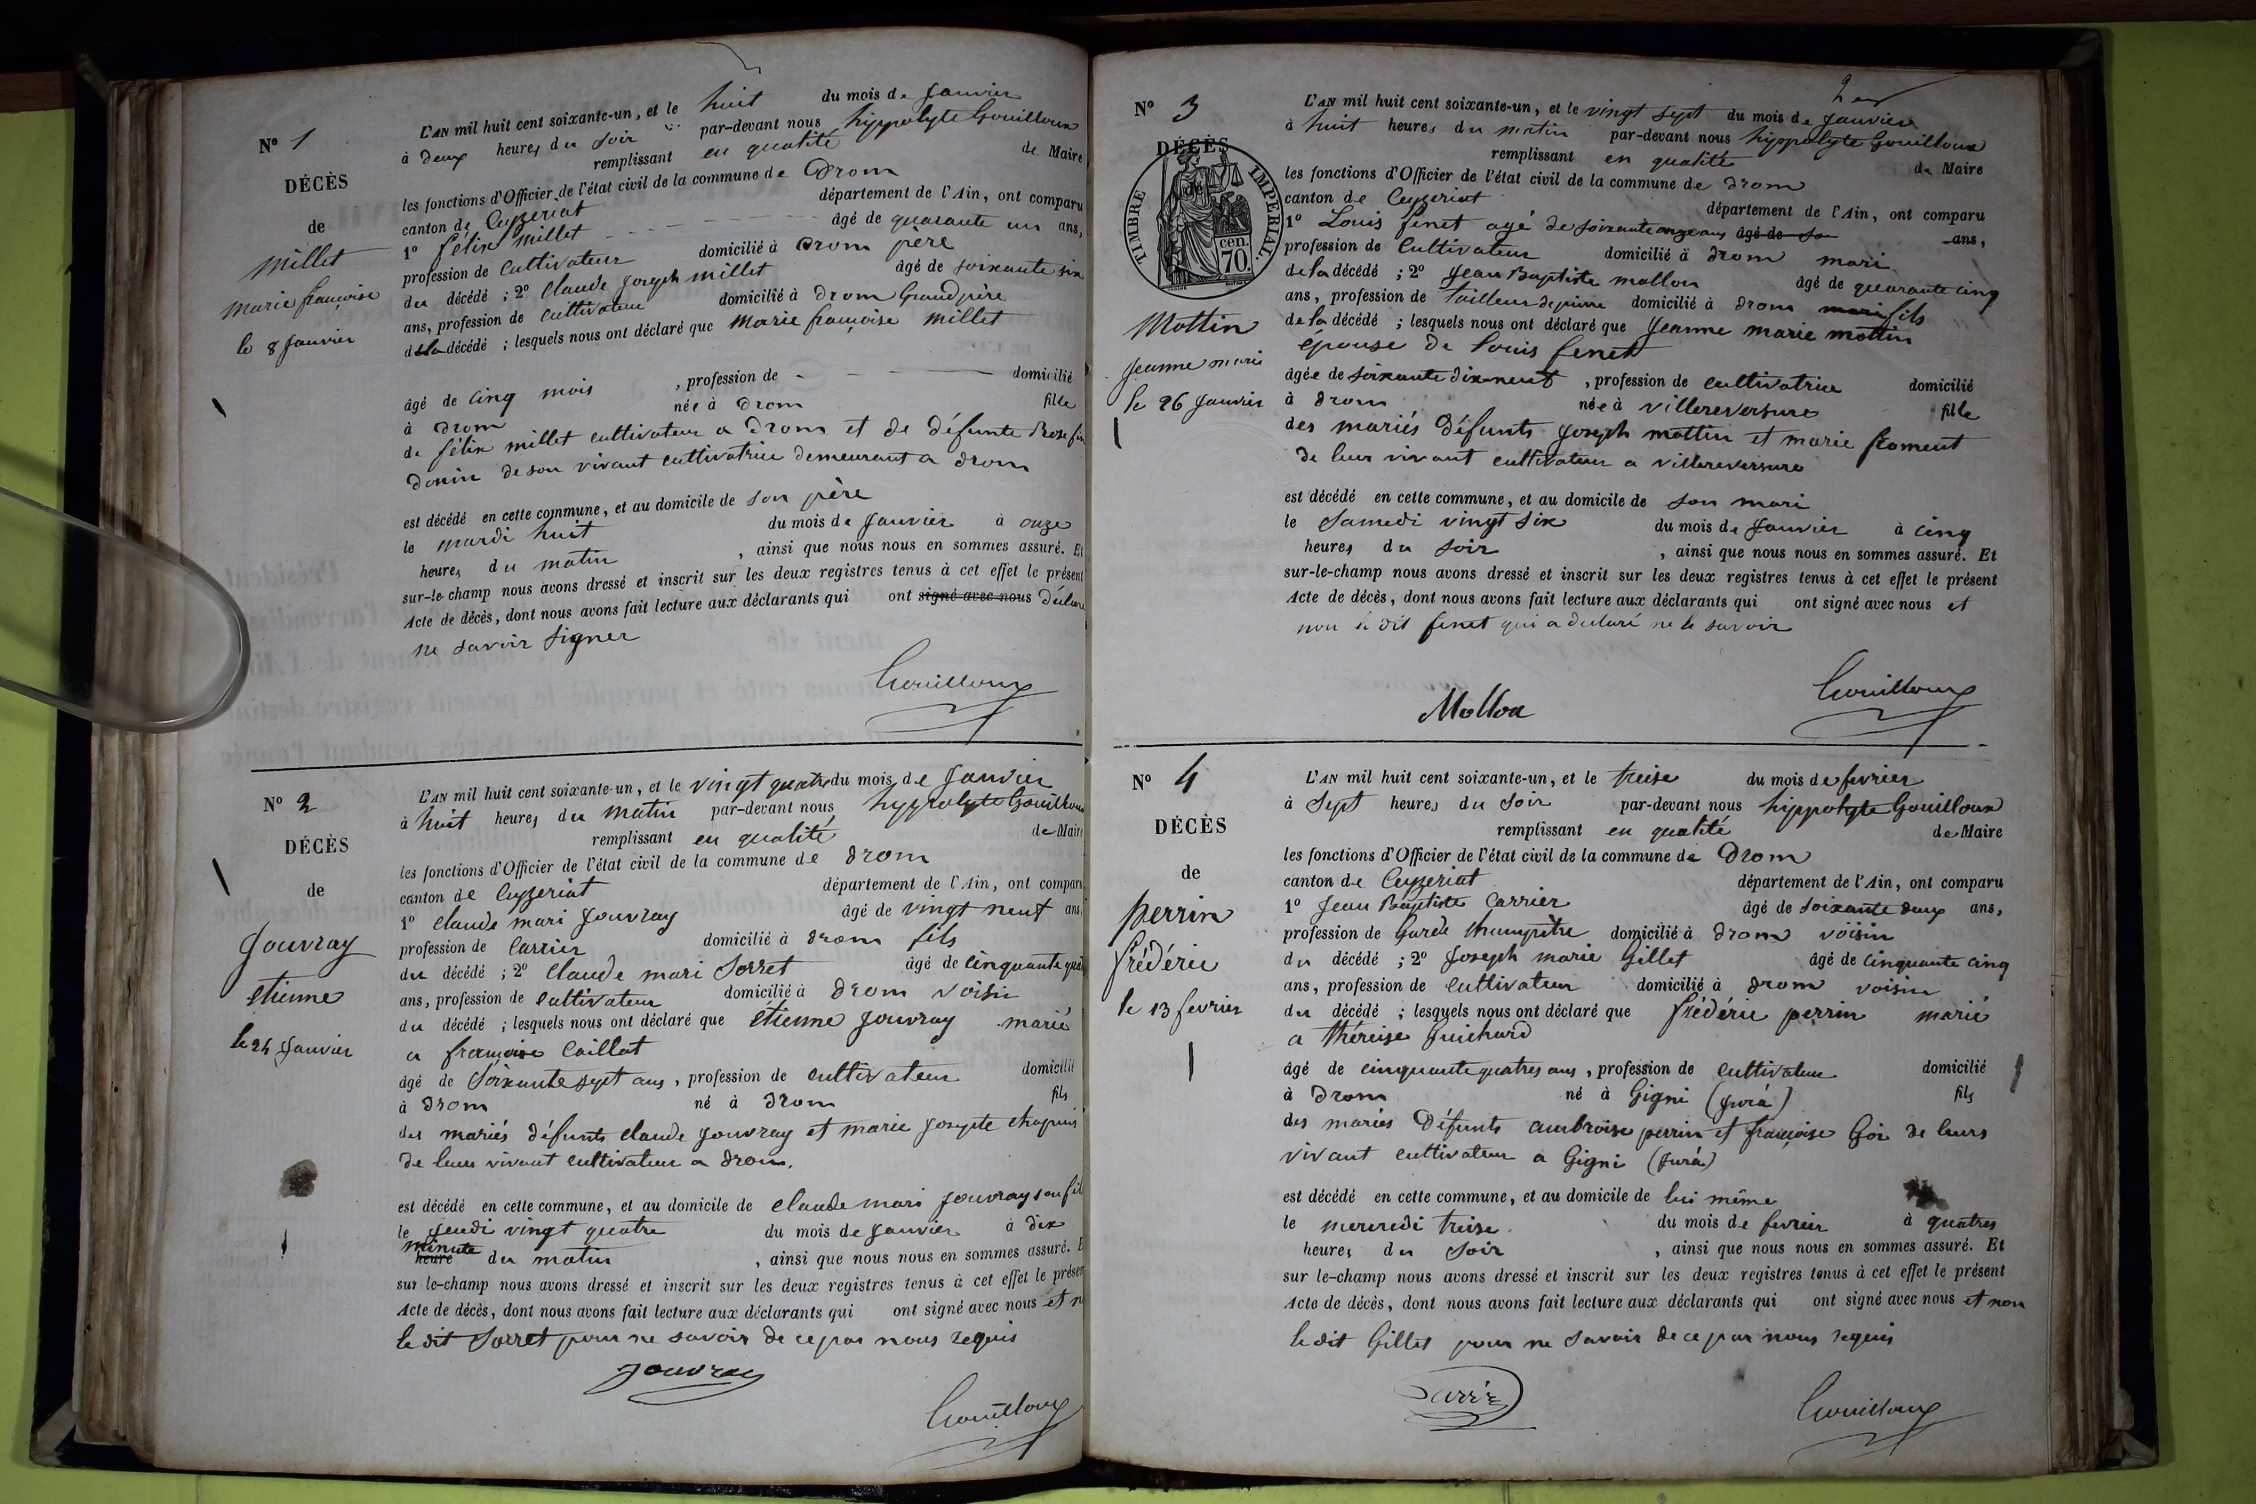 N° 1
DÉCÈS
de
Millet
marie françoise
le 8 Janvier
L'AN mil huit cent soixante-un, et le huit du mois de Janvier
à deux heures du soir par-devant nous hippolyte Gouilloux
remplissant en qualité de Maire
les fonctions d'Officier de l'état civil de la commune de Drom
canton de Ceyzeriat département de l'Ain, ont comparu
1° félix Millet âgé de quarante un ans,
profession de Cultivateur domicilié à Drom père
du décédé ; 2° Claude Joseph Millet âgé de soixante six
ans, profession de Cultivateur domicilié à Drom Grand père
dela décédé ; lesquels nous ont déclaré que Marie françoise Millet
âgé de cinq mois , profession de domicilié
à Drom née à Drom fille
de félix Millet cultivateur a Drom et de défunte Rose
Donin de son vivant cultivatrice demeurant a Drom
est décédé en cette commune, et au domicile de son père
le mardi huit du mois de Janvier à onze
heures du matin , ainsi que nous nous en sommes assuré. Et
sur-le-champ nous avons dressé et inscrit sur les deux registres tenus à cet effet le présent
Acte de décès, dont nous avons fait lecture aux déclarants qui ont signé avec nous déclaré
ne savoir signer
Gouilloux
N° 2
DÉCÈS
de
Jouvray
etienne
le 24 Janvier
L'AN mil huit cent soixante-un, et le vingt quatre du mois de Janvier
à huit heures du matin par-devant nous hyppolyte Gouilloux
remplissant en qualité de Maire
les fonctions d'Officier de l'état civil de la commune de Drom
canton de Ceyzeriat département de l'Ain, ont comparu
1° claude mari Jouvray âgé de vingt neuf ans,
profession de Carrier domicilié à Drom fils
du décédé ; 2° Claude mari Sorret âgé de cinquante
ans, profession de Cultivateur domicilié à Drom voisin
du décédé ; lesquels nous ont déclaré que etienne Jouvray marié
a françoise Caillat
âgé de soixante sept ans , profession de cultivateur domicilié
à Drom né à Drom fils
des mariés défunts claude Jouvray et marie Josepte chapuis
de leurs vivant cultivateur a Drom.
est décédé en cette commune, et au domicile de claude mari Jouvray son fils
le Jeudi vingt quatre du mois de Janvier à dix
minute
heure du matin , ainsi que nous nous en sommes assuré. Et
sur le-champ nous avons dressé et inscrit sur les deux registres tenus à cet effet le présent
Acte de décès, dont nous avons fait lecture aux déclarants qui ont signé avec nous et
le dit Sorret pour ne savoir de ce par nous requis
Jouvray
Gouilloux
2
N° 3
DÉCÈS
de
TIMBRE IMPERIAL.
70. cen.
Mottin
Jeanne marie
le 26 Janvier
L'AN mil huit cent soixante-un, et le vingt sept du mois de Janvier
à huit heures du matin par-devant nous hippolyte Gouilloux
remplissant en qualité de Maire
les fonctions d'Officier de l'état civil de la commune de Drom
canton de Ceyzeriat département de l'Ain, ont comparu
1° Louis fenet agé de soixante onze ans âgé de so ans,
profession de Cultivateur domicilié à Drom mari
de la décédé ; 2° Jean Baptiste mollon âgé de quarante cinq
ans, profession de tailleur de pierre domicilié à Drom mari fils
de la décédé ; lesquels nous ont déclaré que Jeanne marie mottin
épouse de Louis fenet
âgée de soixante dix neuf , profession de cultivatrice domicilié
à Drom née à villereversure fille
des mariés défunts Joseph mottin et marie froment
de leur vivant cultivateur a villereversure
est décédé en cette commune, et au domicile de son mari
le Samedi vingt six du mois de Janvier à cinq
heures du soir , ainsi que nous nous en sommes assuré. Et
sur-le-champ nous avons dressé et inscrit sur les deux registres tenus à cet effet le présent
Acte de décès, dont nous avons fait lecture aux déclarants qui ont signé avec nous et
non le dit fenet qui a déclaré ne le savoir
Mollon
Gouilloux
N° 4
DÉCÈS
de
perrin
frédéric
le 13 fevrier
L'AN mil huit cent soixante-un, et le treise du mois de fevrier
à Sept heures du soir par-devant nous hippolyte Gouilloux
remplissant en qualité de Maire
les fonctions d'Officier de l'état civil de la commune de Drom
canton de Ceyzeriat département de l'Ain, ont comparu
1° Jean Baptiste Carrier âgé de soixante deux ans,
profession de Garde champêtre domicilié à Drom voisin
du décédé ; 2° Joseph marie Gillet âgé de cinquante cinq
ans, profession de cultivateur domicilié à Drom voisin
du décédé ; lesquels nous ont déclaré que frédéric perrin marié
a théreise Guichard
âgé de cinquante quatres ans , profession de cultivateur domicilié
à Drom né à Gigni (Jura) fils
des mariés défunts ambroise perrin et françoise Goi de leurs
vivant cultivateur a Gigni (Jura)
est décédé en cette commune, et au domicile de lui même
le mercredi treise du mois de fevrier à quatres
heures du soir , ainsi que nous nous en sommes assuré. Et
sur le-champ nous avons dressé et inscrit sur les deux registres tenus à cet effet le présent
Acte de décès, dont nous avons fait lecture aux déclarants qui ont signé avec nous et non
le dit Gillet pour ne savoir de ce par nous requis
Gouilloux